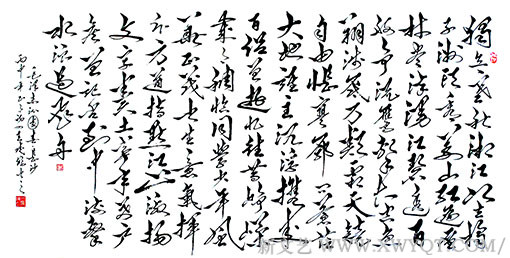 独立寒秋湘江北去橘
子洲头看万山红遍层
林尽染漫江碧透百
舸争流鹰击长空鱼
翔浅底万类霜天竞
自由怅寥廓问苍茫
大地谁主沉浮携来
百侣曾游忆往昔峥嵘
岁月稠恰同学少年风
华正茂书生意气挥
斥方遒指点江山激扬
文字粪土当年万户
侯曾记否到中流击
水浪遏飞舟
毛泽东沁园春长沙
丙申年
新文艺